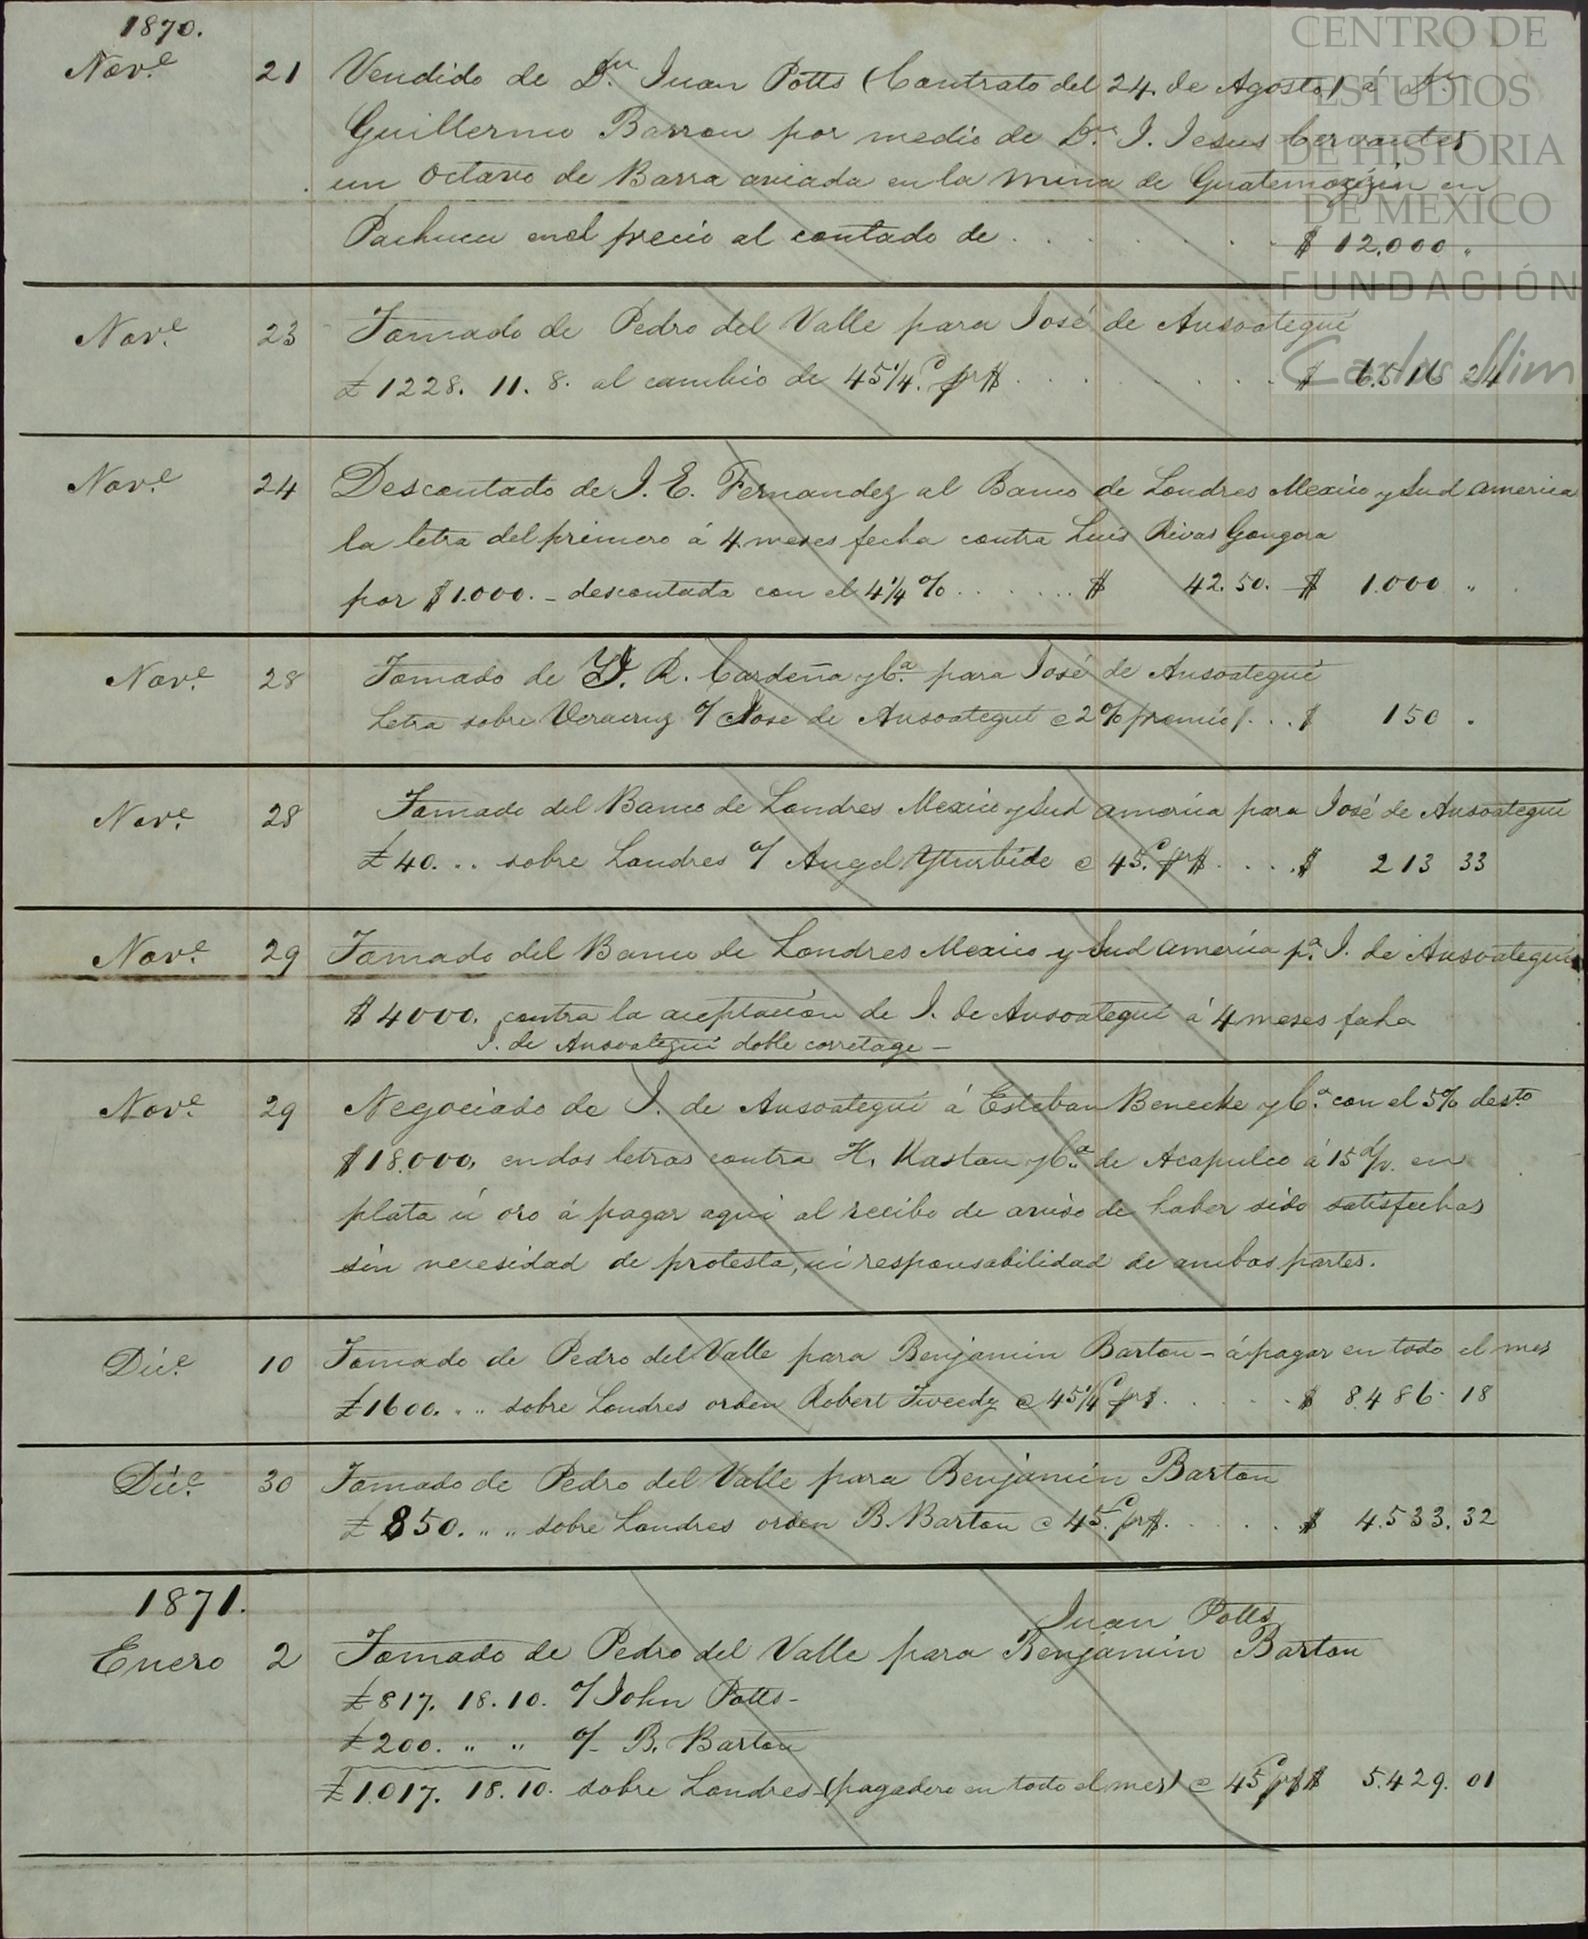 1870.
Nov.e 21 Vendido de D.n Juan Potts (Contrato del 24. de Agosto) á D.n
Guillermo Barron por medio de D.n J. Jesus Cervantes
un octavo de Barra aviada en la mina de Guatemozin en
Pachuca en el precio al contado de . . . . . . $ 12.000 "
Nov.e 23 Tomado de Pedro del Valle para José de Ansoategui
£ 1228. 11. 8. al cambio de 45 1/4.d pr $ . . . . . . . $ 6.516 24
Nov.e 24 Descontado de J. E. Fernandez al Banco de Londres Mexico y Sud America
la letra del primero á 4 meses fecha contra Luis Rivas Gongora
por $ 1.000. - descontada con el 4 1/4 % . . . . . . $ 42.50. $ 1.000 "
Nov.e 28 Tomado de R. Cardeña y C.a para José de Ansoategui
Letra sobre Veracruz o/ Jose de Ansoategui @ 2% premio . . . $ 150 .
Nov.e 28 Tomado del Banco de Londres Mexico y Sud America para José de Ansoategui
£ 40. . . sobre Londres o/ Angel Yturbide @ 45.d pr $ . . . . $ 213 33
Nov.e 29 Tomado del Banco de Londres Mexico y Sud America p.a J. de Ansoategui
$ 4000. contra la aceptacion de J. de Ansoategui á 4 meses fecha
J. de Ansoategui doble corretage -
Nov.e 29 Negociado de J. de Ansoategui á Esteban Benecke y C.a con el 5% des.to
$ 18.000, en dos letras contra H. Kastan y C.a de Acapulco á 15 d/v. en
plata ú oro á pagar aqui al recibo de aviso de haber sido satisfechas
sin necesidad de protesta, ni responsabilidad de ambas partes.
Dic.e 10 Tomado de Pedro del Valle para Benjamin Barton - á pagar en todo el mes
£ 1600. " " sobre Londres orden Robert Tweedy @ 45 1/4 d pr $ . . . . . $ 8.486. 18
Dic.e 30 Tomado de Pedro del Valle para Benjamin Barton
£ 850. " " sobre Londres orden B. Barton @ 45.d pr $. . . . . $ 4.533. 32
1871.
Juan Potts
Enero 2 Tomado de Pedro del Valle para Benjamin Barton
£ 817. 18. 10. o/ John Potts -
£ 200. " " o/ B. Barton
£ 1.017. 18. 10. sobre Londres (pagadero en todo el mes) @ 45 d pr $ $ 5.429. 01
CENTRO DE
ESTUDIOS
DE HISTORIA
DE MEXICO
FUNDACIÓN
Carlos Slim